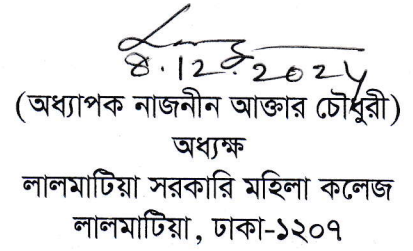 8.12.2024
(অধ্যাপক নাজনীন আক্তার চৌধুরী)
অধ্যক্ষ
লালমাটিয়া সরকারি মহিলা কলেজ
লালমাটিয়া, ঢাকা-১২০৭